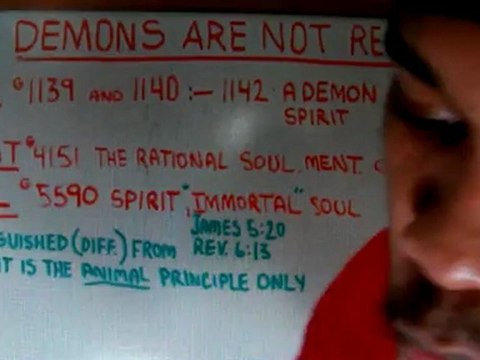 DEMONS ARE NOT RE
G1139 AND 1140:- 1142 A DEMON
SPIRIT
IT G4151 THE RATIONAL SOUL, MENT.
G5590 SPIRIT, "IMMORTAL" SOUL
JAMES 5:20
GUISHED (DIFF.) FROM REV. 6:13
IT IS THE ANIMAL PRINCIPLE ONLY